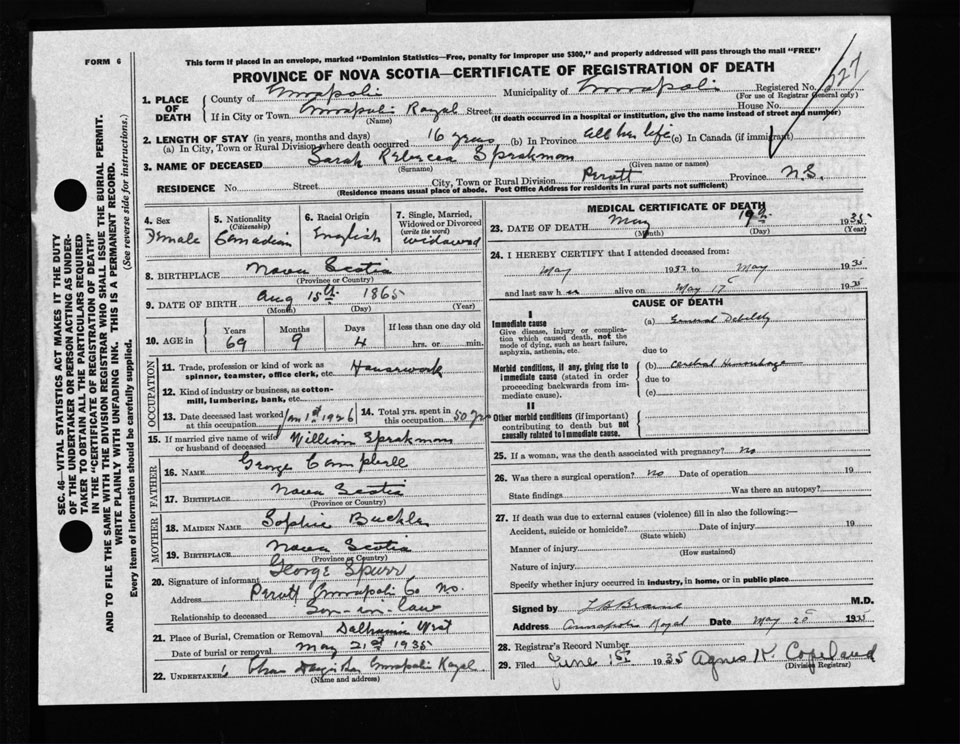 FORM 6
This form if placed in an envelope, marked "Dominion Statistics—Free, penalty for improper use $300," and properly addressed will pass through the mail "FREE"
PROVINCE OF NOVA SCOTIA—CERTIFICATE OF REGISTRATION OF DEATH
Registered No. 227
(For use of Registrar General only)
1. PLACE OF DEATH
County of Annapolis Municipality of Annapolis
If in City or Town Annapolis Royal Street House No.
(Name) (If death occurred in a hospital or institution, give the name instead of street and number)
2. LENGTH OF STAY (in years, months and days)
(a) In City, Town or Rural Division where death occurred 16 years (b) In Province all her life (c) In Canada (if immigrant)
3. NAME OF DECEASED Sarah Rebecca
(Surname) (Given name or names)
RESIDENCE No. Street City, Town or Rural Division Perott Province N.S.
(Residence means usual place of abode. Post Office Address for residents in rural parts not sufficient)
4. Sex
Female
5. Nationality
(Citizenship)
Canadian
6. Racial Origin
English
7. Single, Married, Widowed or Divorced
(write the word)
widowed
8. BIRTHPLACE Nova Scotia
(Province or Country)
9. DATE OF BIRTH Aug 15th 1865
(Month) (Day) (Year)
10. AGE in
Years Months Days If less than one day old
69 9 4 hrs. or min.
OCCUPATION
11. Trade, profession or kind of work as spinner, teamster, office clerk, etc. Housework
12. Kind of industry or business, as cotton-mill, lumbering, bank, etc.
13. Date deceased last worked at this occupation Jan 1st 1926
14. Total yrs. spent in this occupation 50 yrs
15. If married give name of wife or husband of deceased William
FATHER
16. NAME George Campbell
17. BIRTHPLACE Nova Scotia
(Province or Country)
MOTHER
18. MAIDEN NAME Sophia Buckler
19. BIRTHPLACE Nova Scotia
(Province or Country)
20. Signature of informant George Spurr
Address Perott Annapolis Co N.S.
Relationship to deceased Son-in-law
21. Place of Burial, Cremation or Removal Dalhousie West
Date of burial or removal May 21st 1935
22. UNDERTAKER Annapolis Royal
(Name and address)
MEDICAL CERTIFICATE OF DEATH
23. DATE OF DEATH May 19th 1935
(Month) (Day) (Year)
24. I HEREBY CERTIFY that I attended deceased from:
May 1932 to May 1935
and last saw her alive on May 17 1935
CAUSE OF DEATH
I
Immediate cause
Give disease, injury or complication which caused death, not the mode of dying, such as heart failure, asphyxia, asthenia, etc.
(a) General Debility
due to
Morbid conditions, if any, giving rise to immediate cause (stated in order proceeding backwards from immediate cause).
(b) Cerebral Hemorrhage
due to
(c)
II
Other morbid conditions (if important) contributing to death but not causally related to immediate cause.
25. If a woman, was the death associated with pregnancy? no
26. Was there a surgical operation? no Date of operation 19
State findings Was there an autopsy?
27. If death was due to external causes (violence) fill in also the following:—
Accident, suicide or homicide? Date of injury 19
(State which)
Manner of injury
(How sustained)
Nature of injury
Specify whether injury occurred in industry, in home, or in public place
Signed by M.D.
Address Annapolis Royal Date May 20 1935
28. Registrar's Record Number
29. Filed June 1st 1935 Agnes K. Copeland
(Division Registrar)
SEC. 46—VITAL STATISTICS ACT MAKES IT THE DUTY
OF THE UNDERTAKER OR PERSON ACTING AS UNDER-
TAKER TO OBTAIN ALL THE PARTICULARS REQUIRED
IN THE "CERTIFICATE OF REGISTRATION OF DEATH"
AND TO FILE THE SAME WITH THE DIVISION REGISTRAR WHO SHALL ISSUE THE BURIAL PERMIT.
WRITE PLAINLY WITH UNFADING INK. THIS IS A PERMANENT RECORD.
Every item of information should be carefully supplied. (See reverse side for instructions.)